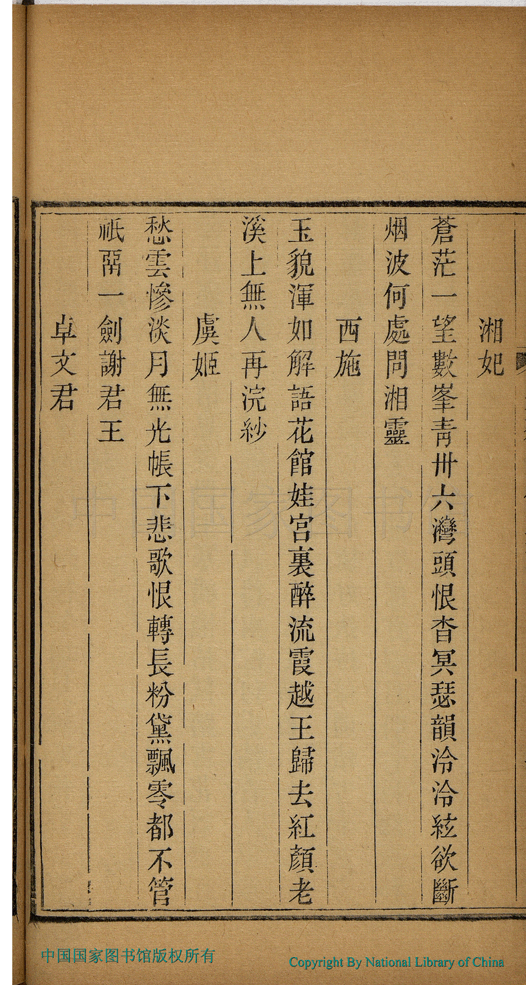 湘妃
蒼茫一望數峯青卅六灣頭恨杳冥瑟韻泠泠絃欲斷
烟波何處問湘靈
西施
玉貌渾如解語花館娃宮裏醉流霞越王歸去紅顏老
溪上無人再浣紗
虞姬
愁雲慘淡月無光帳下悲歌恨轉長粉黛飄零都不管
祇畱一劍謝君王
卓文君
中国国家图书馆版权所有
Copyright By National Library of China